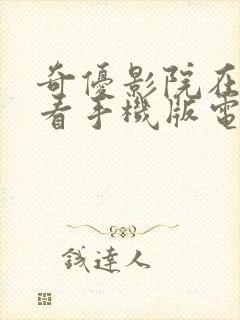 奇優影院在
看手機版電
钱達人